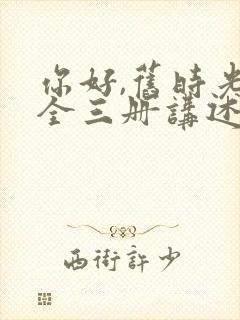 你好,舊時光
全三册講述
西街許少